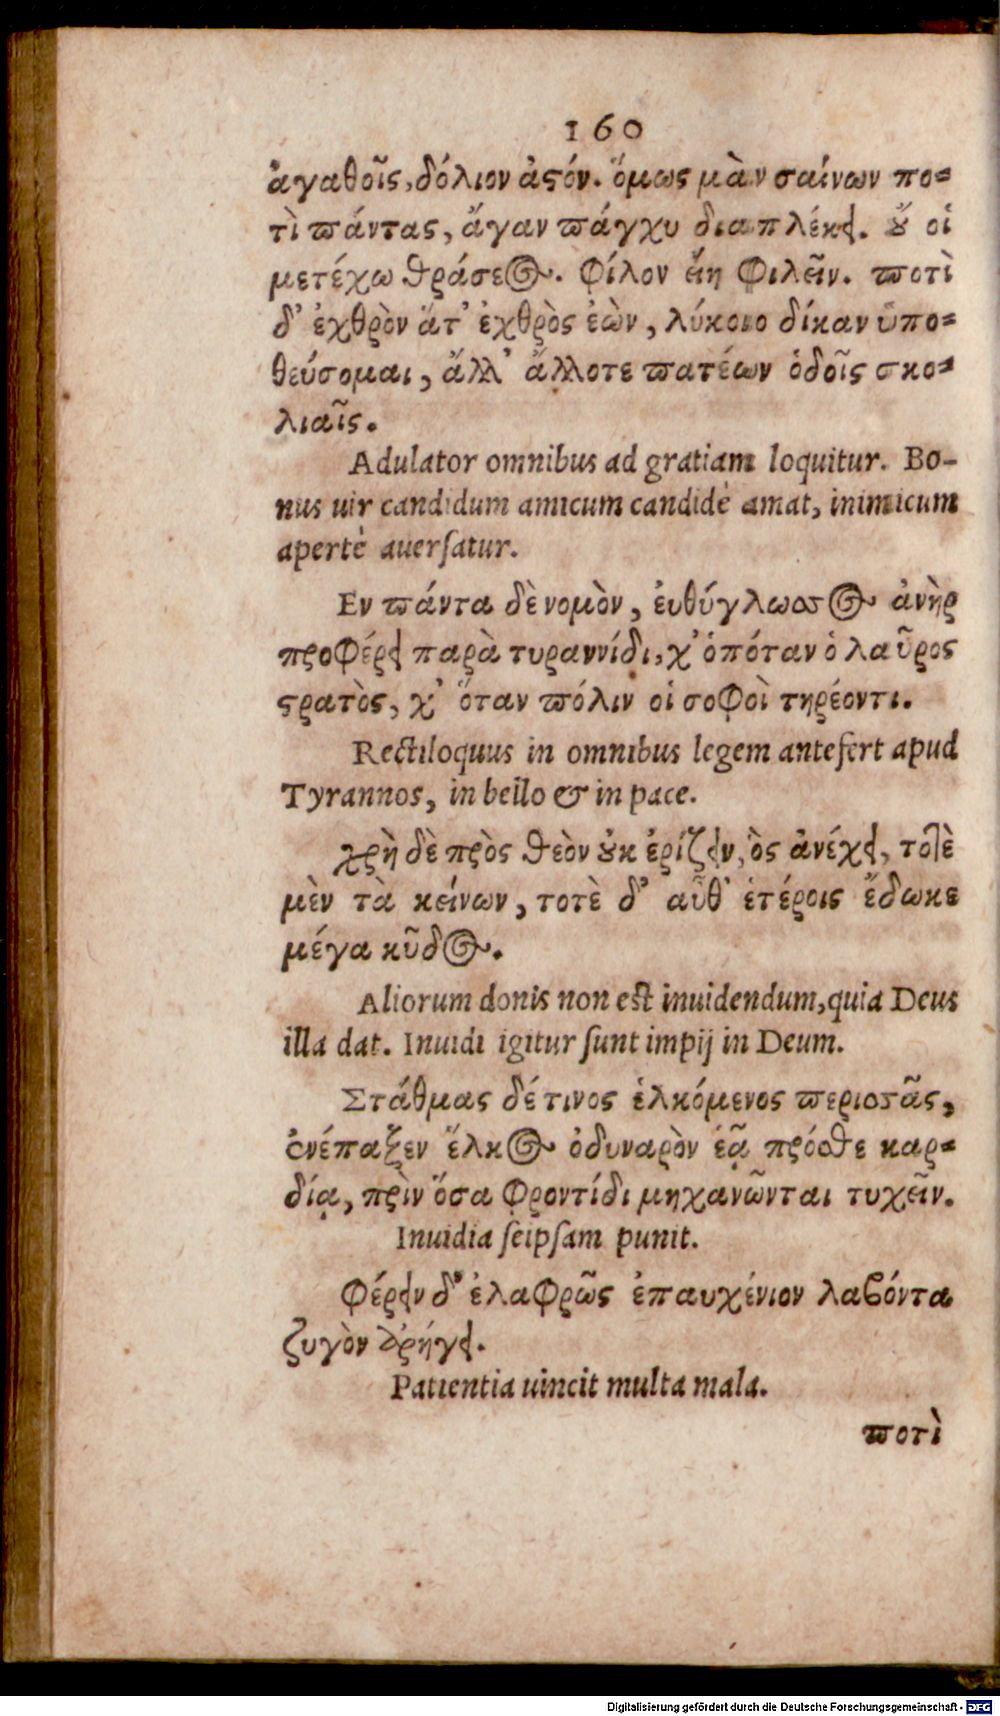 160
ἀγαθοῖς, δόλιον ἀςόν. ὅμως μὰν σαίνων πο-
τὶ πάντας, ἄγαν πάγχυ διαπλέκει. ȣ̓́ οἱ
μετέχω θράσεος. Φίλον εἴη Φιλεῖν. ποτὶ
δ' ἐχθρὸν ἅτ' ἐχθρὸς ἐὼν, λύκοιο δίκαν ὑπο-
θεύσομαι, ἄλλ' ἄλλοτε πατέων ὁδοῖς σκο-
λιαῖς.
Adulator omnibus ad gratiam loquitur. Bo-
nus uir candidum amicum candidè amat, inimicum
apertè auerſatur.
Εν πάντα δὲ νομὸν, ἐυθύγλωσσος ἀνὴρ
προΦέρει παρὰ τυραννίδι, χ' ὁπόταν ὁ λαῦρος
ςρατὸς, χ' ὅταν πόλιν οἱ σοΦοὶ τηρέοντι.
Rectiloquus in omnibus legem antefert apud
Tyrannos, in bello & in pace.
χρὴ δὲ πρὸς θεὸν ȣ̓κ ἐρίζειν, ὃς ἀνέχει, τοτὲ
μὲν τὰ κείνων, τοτὲ δ' αὖθ' ἑτέροις ἔδωκε
μέγα κῦδος.
Aliorum donis non est inuidendum, quia Deus
illa dat. Inuidi igitur ſunt impij in Deum.
Στάθμας δέ τινος ἑλκόμενος περισσᾶς,
ἐνέπαξεν ἕλκος ὀδυναρὸν ἑᾷ πρόσθε καρ-
δίᾳ, πρὶν ὅσα Φροντίδι μηχανῶνται τυχεῖν.
Inuidia ſeipſam punit.
Φέρειν δ' ἐλαΦρῶς ἐπαυχένιον λαβόντα
ζυγὸν ἀρήγει.
Patientia uincit multa mala.
ποτὶ
Digitalisierung gefördert durch die Deutsche Forschungsgemeinschaft - DFG